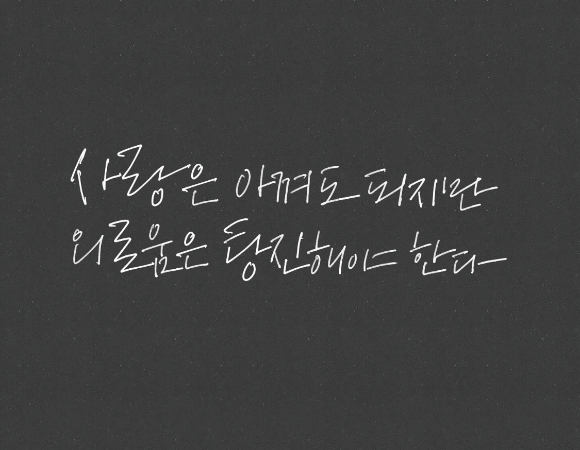 사랑은 아껴도 되지만
외로움은 탕진해야 한다